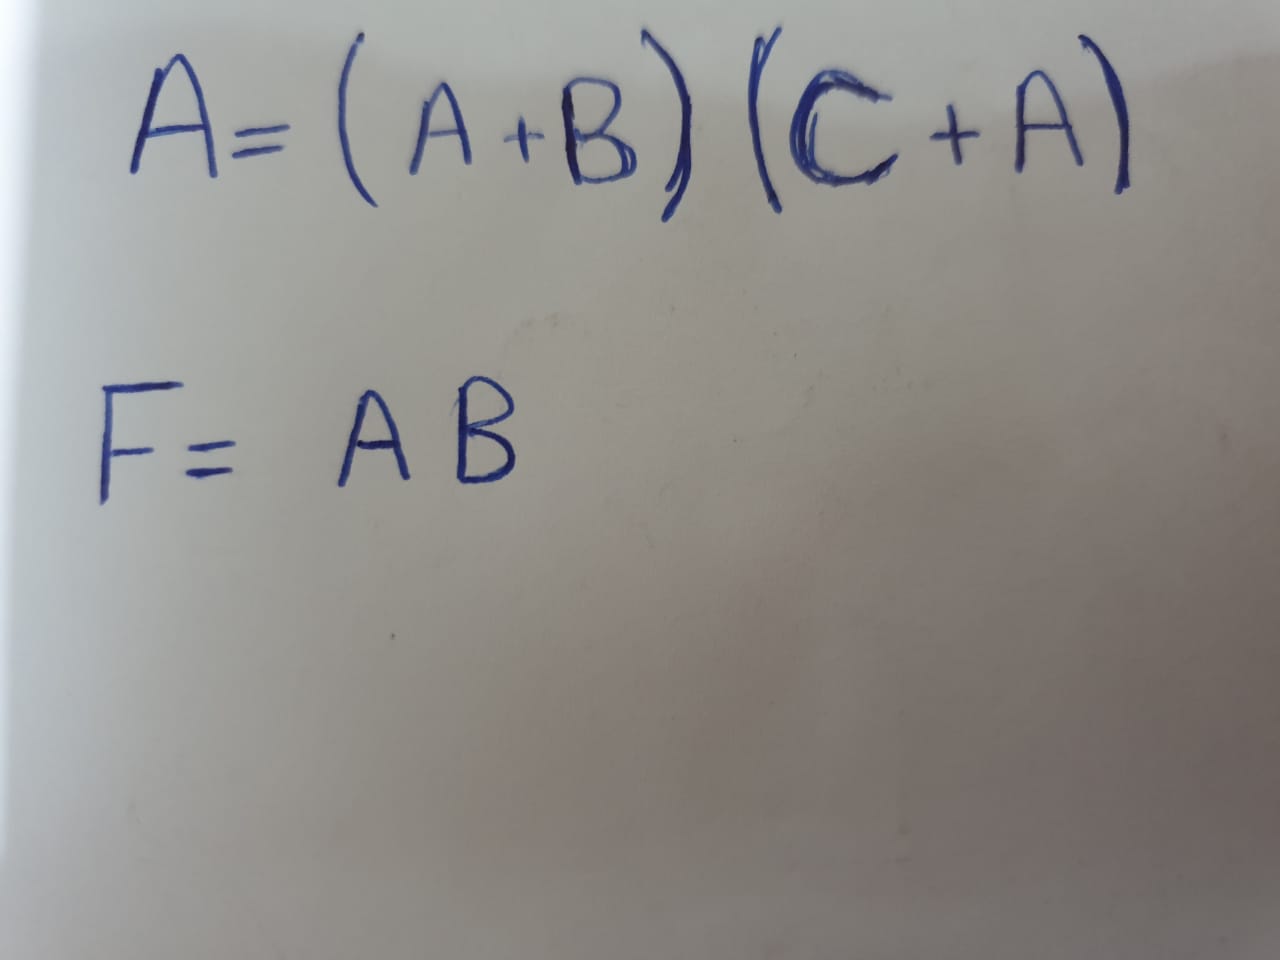 A = (A + B) (C + A)
F = A B